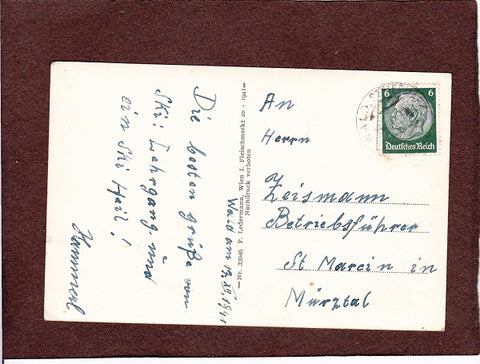 Die besten grüße vom
Ski: Lehrgang und
ein Ski Heil!
Wald am 19.XII.1941
Nr. 33946 P. Ledermann, Wien I. Fleischmarkt 20 - 1941
Nachdruck verboten
An
Herrn
Zeismann
Betriebsführer
St Marein in
Mürztal
6 6
Deutsches Reich
WALD